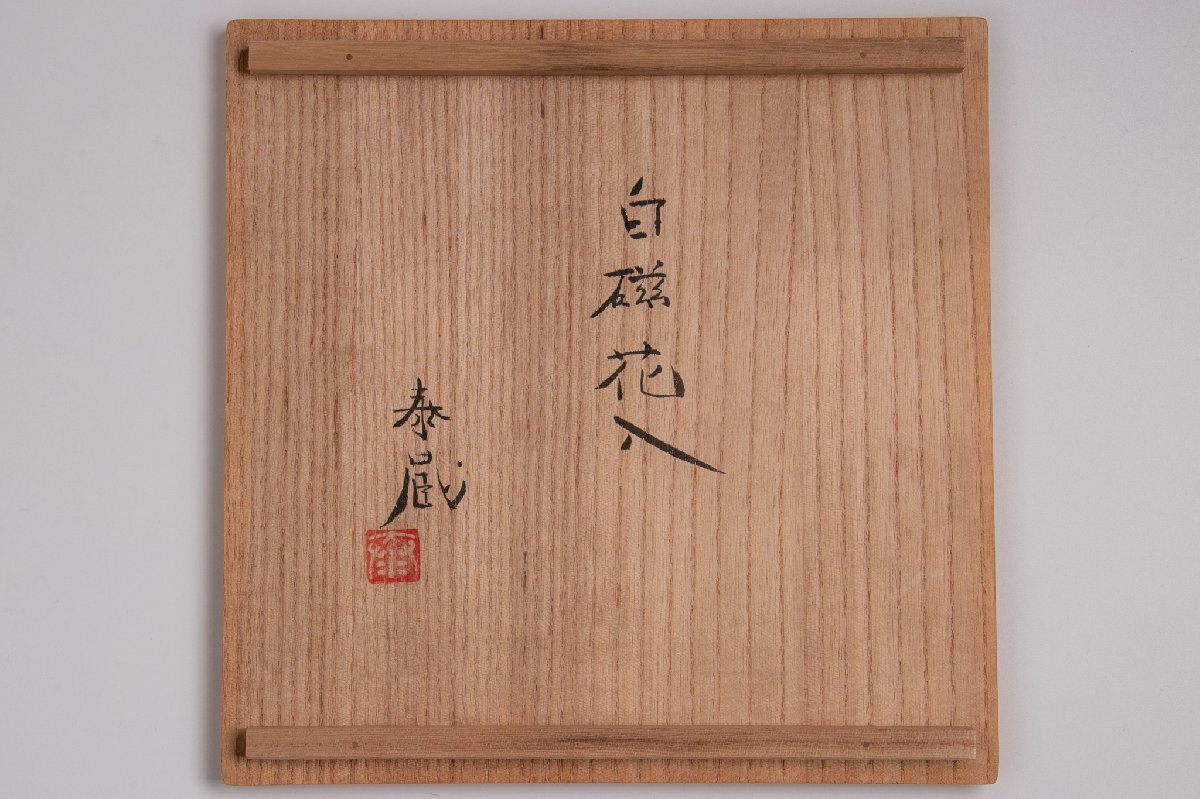 白磁花入
泰蔵